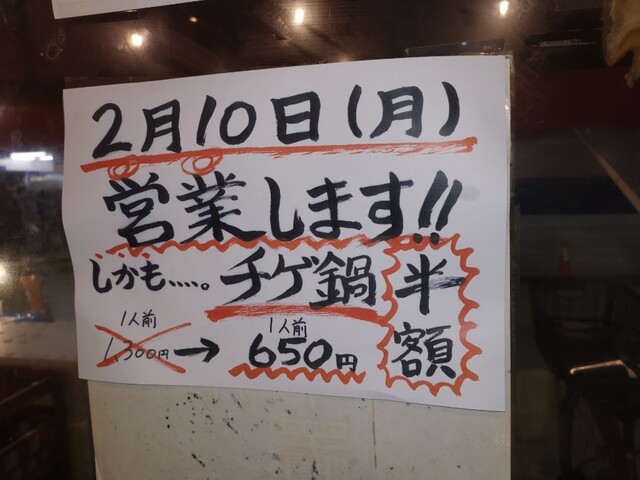 2月10日(月)
営業します!!
しかも、、、、。チゲ鍋 半額
1人前 1,300円 → 1人前 650円